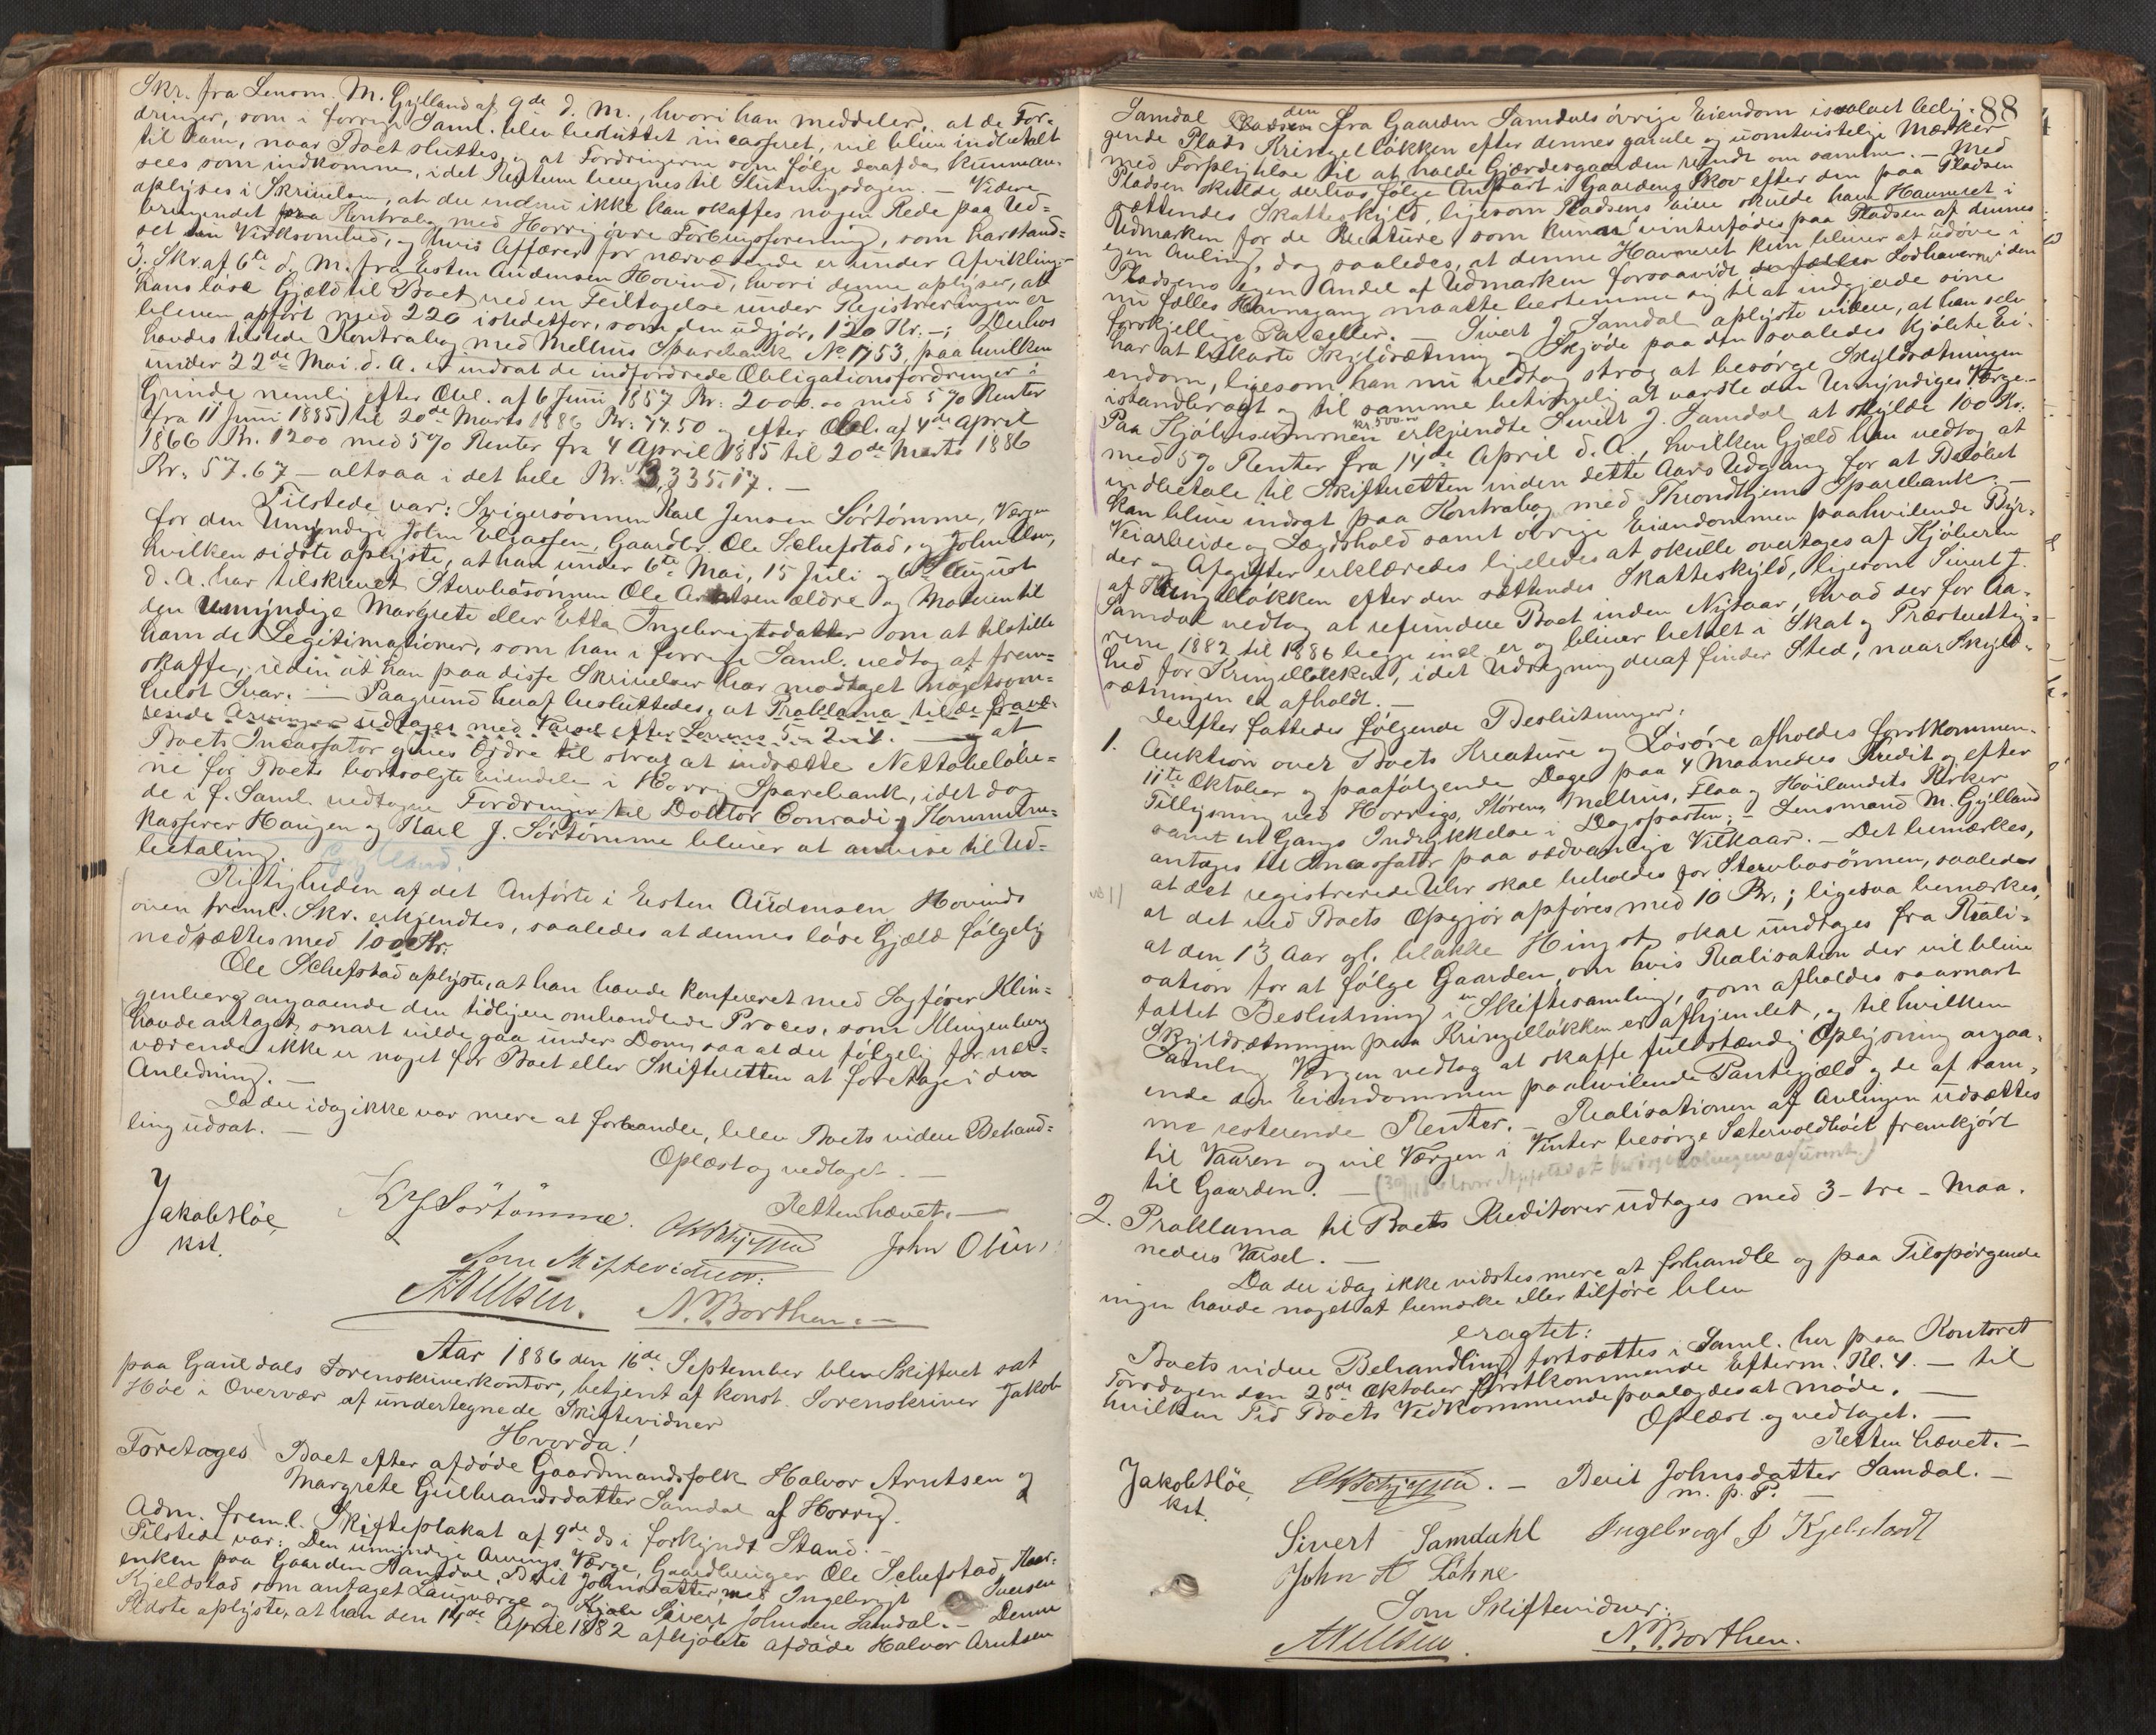 Skr. fra Lensm. M. Gylland af 9de d. M., hvori han meddeler, at de For-
dringer, som i forrige Saml. blev besluttet incasseret, vil blive indbetalt
til ham, naar Boet sluttes, og at Fordringerne som Følge deraf da kunne an-
sees som indkomne, idet Renterne beregnes til Slutningsdagen. — Videre
oplyses i Skrivelsen, at der endnu ikke kan skaffes nogen Rede paa Ud-
bringendet paa Kontrabog med Horrig øvre Forbrugsforening, som har stand-
set sin Virksomhed, og hvis Affærer for nærværende er under Afvikling.
3. Skr. af 6te d. M. fra Esten Audensen Hovind, hvori denne oplyser, at
hans løse Gjæld til Boet ved en Feiltagelse under Registreringen er
bleven opført med 220 istedetfor, som den udgjør, 120 Kr. —; Derhos
havdes tilstede Kontrabog med Melhus Sparebank No 1753, paa hvilken
under 22de Mai d. A. er indsat de indfordrede Obligationsfordringer i
Grinde nemlig efter Obl. af 6 Juni 1857 Kr. 2000.00 med 5% Renter
fra 11 Juni 1885 til 20de Marts 1886 Kr. 77.50 og efter Obl. af 4de April
1866 Kr. 1200 med 5% Renter fra 4 April 1885 til 20de Marts 1886
Kr. 57.67 — altsaa i det hele Kr. 3,335.17. —
Tilstede var: Svigersønnen Karl Jensen Sørtømme, Værgen
for den Umyndige John Eliassen, Gaardbr. Ole Schefstad, og John Olsen,
hvilken sidste oplyste, at han under 6te Mai, 15 Juli og 6te August
d. A. har tilskrevet Stervbosønnen Ole Arntsen ældre og Moderen til
den Umyndige Margrete eller Etta Ingebrigtsdatter om at tilstille
ham de Legitimationer, som han i forrige Saml. vedtog at frem-
skaffe, uden at han paa disse Skrivelser har modtaget nogetsom-
helst Svar. — Paagrund heraf besluttedes, at Proklama til de fravæ-
rende Arvinger udtages med Varsel efter Lovens 5-2-4. — og at
Boets Incassator gives Ordre til strax at indsætte Nettobeløbe-
ne for Boets bortsolgte Eiendele i Horrig Sparebank, idet dog
de i f. Saml. vedtagne Fordringer til Doktor Conradi, Kommune-
kasserer Haugen og Karl J. Sørtømme bliver at anvise til Ud-
betaling. Gylland.
Rigtigheden af det Anførte i Esten Audensen Hovinds
oven freml. Skr. erkjendtes, saaledes at dennes løse Gjæld følgelig
nedsættes med 100 Kr.
Ole Schefstad oplyste, at han havde konfereret med Sagfører Klin-
genberg angaaende den tidligere omhandlede Proces, som Klingenberg
havde antaget snart vilde gaa under Dom, saa at der følgelig for nær-
værende ikke er noget for Boet eller Skifteretten at foretage i den
Anledning. —
Da der idag ikke var mere at forhandle, blev Boets videre Behand-
ling udsat. —
Oplæst og vedtaget. —
Retten hævet. —
Jakob Høe
kst.
K J Sörtömme. OKSchjefstad John Olsen
Som Skiftevidner:
ANilsen. N. Borthen. —
Aar 1886 den 16de September blev Skifteret sat
paa Gauldals Sorenskriverkontor, betjent af konst. Sorenskriver Jakob
Høe i Overvær af undertegnede Skiftevidner
Hvorda!
Foretoges Boet efter afdøde Gaardmandsfolk Halvor Arntsen og
Margrete Gulbrandsdatter Samdal af Horrig.
Adm. freml. Skifteplakat af 9de ds i forkyndt Stand. —
Tilstede var: Den umyndige Arvings Værge, Gaardbruger Ole Schefstad, Kaar-
enken paa Gaarden Samdal, Berit Johnsdatter, med Ingebrigt Iversen
Kjeldstad som antaget Laugværge og Kjøber Sivert Johnsen Samdal. — Denne
sidste oplyste, at han den 14de April 1882 afkjøbte afdøde Halvor Arntsen
88
Samdal Pladsen den fra Gaarden Samdals øvrige Eiendom isoleret belig-
gende Plads Kringelløkken efter dennes gamle og uomtvistelige Mærker
med Forpligtelse til at holde Gjærdesgaarden rundt om samme. — Med
Pladsen skulde derhos følge Anpart i Gaardens Skov efter den paa Pladsen
sættendes Skatteskyld, ligesom Pladsens Eier skulde have Havneret i
Udmarken for de Kreature, som kunne vinterfødes paa Pladsen af dennes
egen Avling, dog saaledes, at denne Havneret kun bliver at udøve i
Pladsens egen Andel af Udmarken forsaavidt de fælles Lodhavere i den
nu fælles Havnegang maatte bestemme sig til at indgjerde sine
forskjellige Parceller. — Sivert J. Samdal oplyste videre, at han selv
har at bekoste Skyldsætning og Skjøde paa den saaledes kjøbte Ei-
endom, ligesom han nu vedtog strax at besørge Skyldsætningen
istandbragt og til samme betimelig at varsle den Umyndiges Værge. —
Paa Kjøbesummen kr. 500.00 erkjendte Sivert J. Samdal at skylde 100 Kr.
med 5% Renter fra 14de April d. A., hvilken Gjæld han vedtog at
indbetale til Skifteretten inden dette Aars Udgang for at Beløbet
kan blive indsat paa Kontrabog med Throndhjems Sparebank. —
Veiarbeide og Lægdshold samt øvrige Eiendommen paahvilende Byr-
der og Afgifter erklæredes ligeledes at skulle overtages af Kjøberen
af Kringelløkken efter den sættendes Skatteskyld, ligesom Sivert J.
Samdal vedtog at refundere Boet inden Nytaar, hvad der for Aa-
rene 1882 til 1886 begge incl. er og bliver betalt i Skat og Præsterettig-
hed for Kringelløkken, idet Udregning deraf finder Sted, naar Skyld-
sætningen er afholdt. —
Derefter fattedes følgende Beslutninger:
1. Auktion over Boets Kreature og Løsøre afholdes førstkommen-
11te Oktober og paafølgende Dage paa 4 Maaneders Kredit og efter
Tillysning ved Horrigs, Størens, Melhus, Flaa og Høilandets Kirker
samt en Gangs Indrykkelse i Dagsposten; — Lensmand M. Gylland
antages til Incassator paa sedvanlige Vilkaar. — Det bemærkes,
at det registrerede Uhr skal beholdes for Stervbosønnen, saaledes
at det ved Boets Opgjør opføres med 10 Kr.; ligesaa bemærkes,
at den 13 Aar gl. blakke Hingst skal undtages fra Reali-
sation for at følge Gaarden, om hvis Realisation der vil blive
fattet Beslutning i en Skiftesamling, som afholdes saasnart
Skyldsætningen paa Kringelløkken er afhjemlet, og til hvilken
Samling Værgen vedtog at skaffe fuldstændig Oplysning angaa-
ende den Eiendommen paahvilende Pantegjæld og de af sam-
me resterende Renter. — Realisationen af Avlingen udsættes
til Vaaren og vil Værgen i Vinter besørge Sætervoldhøet fremkjørt
til Gaarden. —
2. Proklama til Boets Kreditorer udtages med 3 - tre - Maa-
neders Varsel. —
Da der idag ikke vidstes mere at forhandle og paa Tilspørgende
ingen havde noget at bemærke eller tilføre blev
eragtet:
Boets videre Behandling fortsættes i Saml. her paa Kontoret
Torsdagen den 28de Oktober førstkommende Efterm. Kl. 4. — til
hvilken Tid Boets Vedkommende paalagdes at møde. —
Oplæst og vedtaget. —
Retten hævet. —
Jakob Høe
kst.
OKSchjefstad. — Berit Johnsdatter Samdal. —
m. p. P.
Sivert Samdahl Ingebrigt J Kjelstad
John A Löhne
Som Skiftevidner:
ANilsen. N. Borthen.